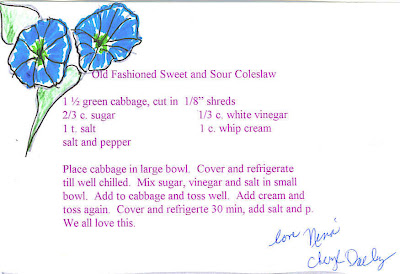 Old Fashioned Sweet and Sour Coleslaw
1 ½ green cabbage, cut in 1/8" shreds
2/3 c. sugar 1/3 c. white vinegar
1 t. salt 1 c. whip cream
salt and pepper
Place cabbage in large bowl. Cover and refrigerate
till well chilled. Mix sugar, vinegar and salt in small
bowl. Add to cabbage and toss well. Add cream and
toss again. Cover and refrigerte 30 min, add salt and p.
We all love this.
love Nena
Cheryl